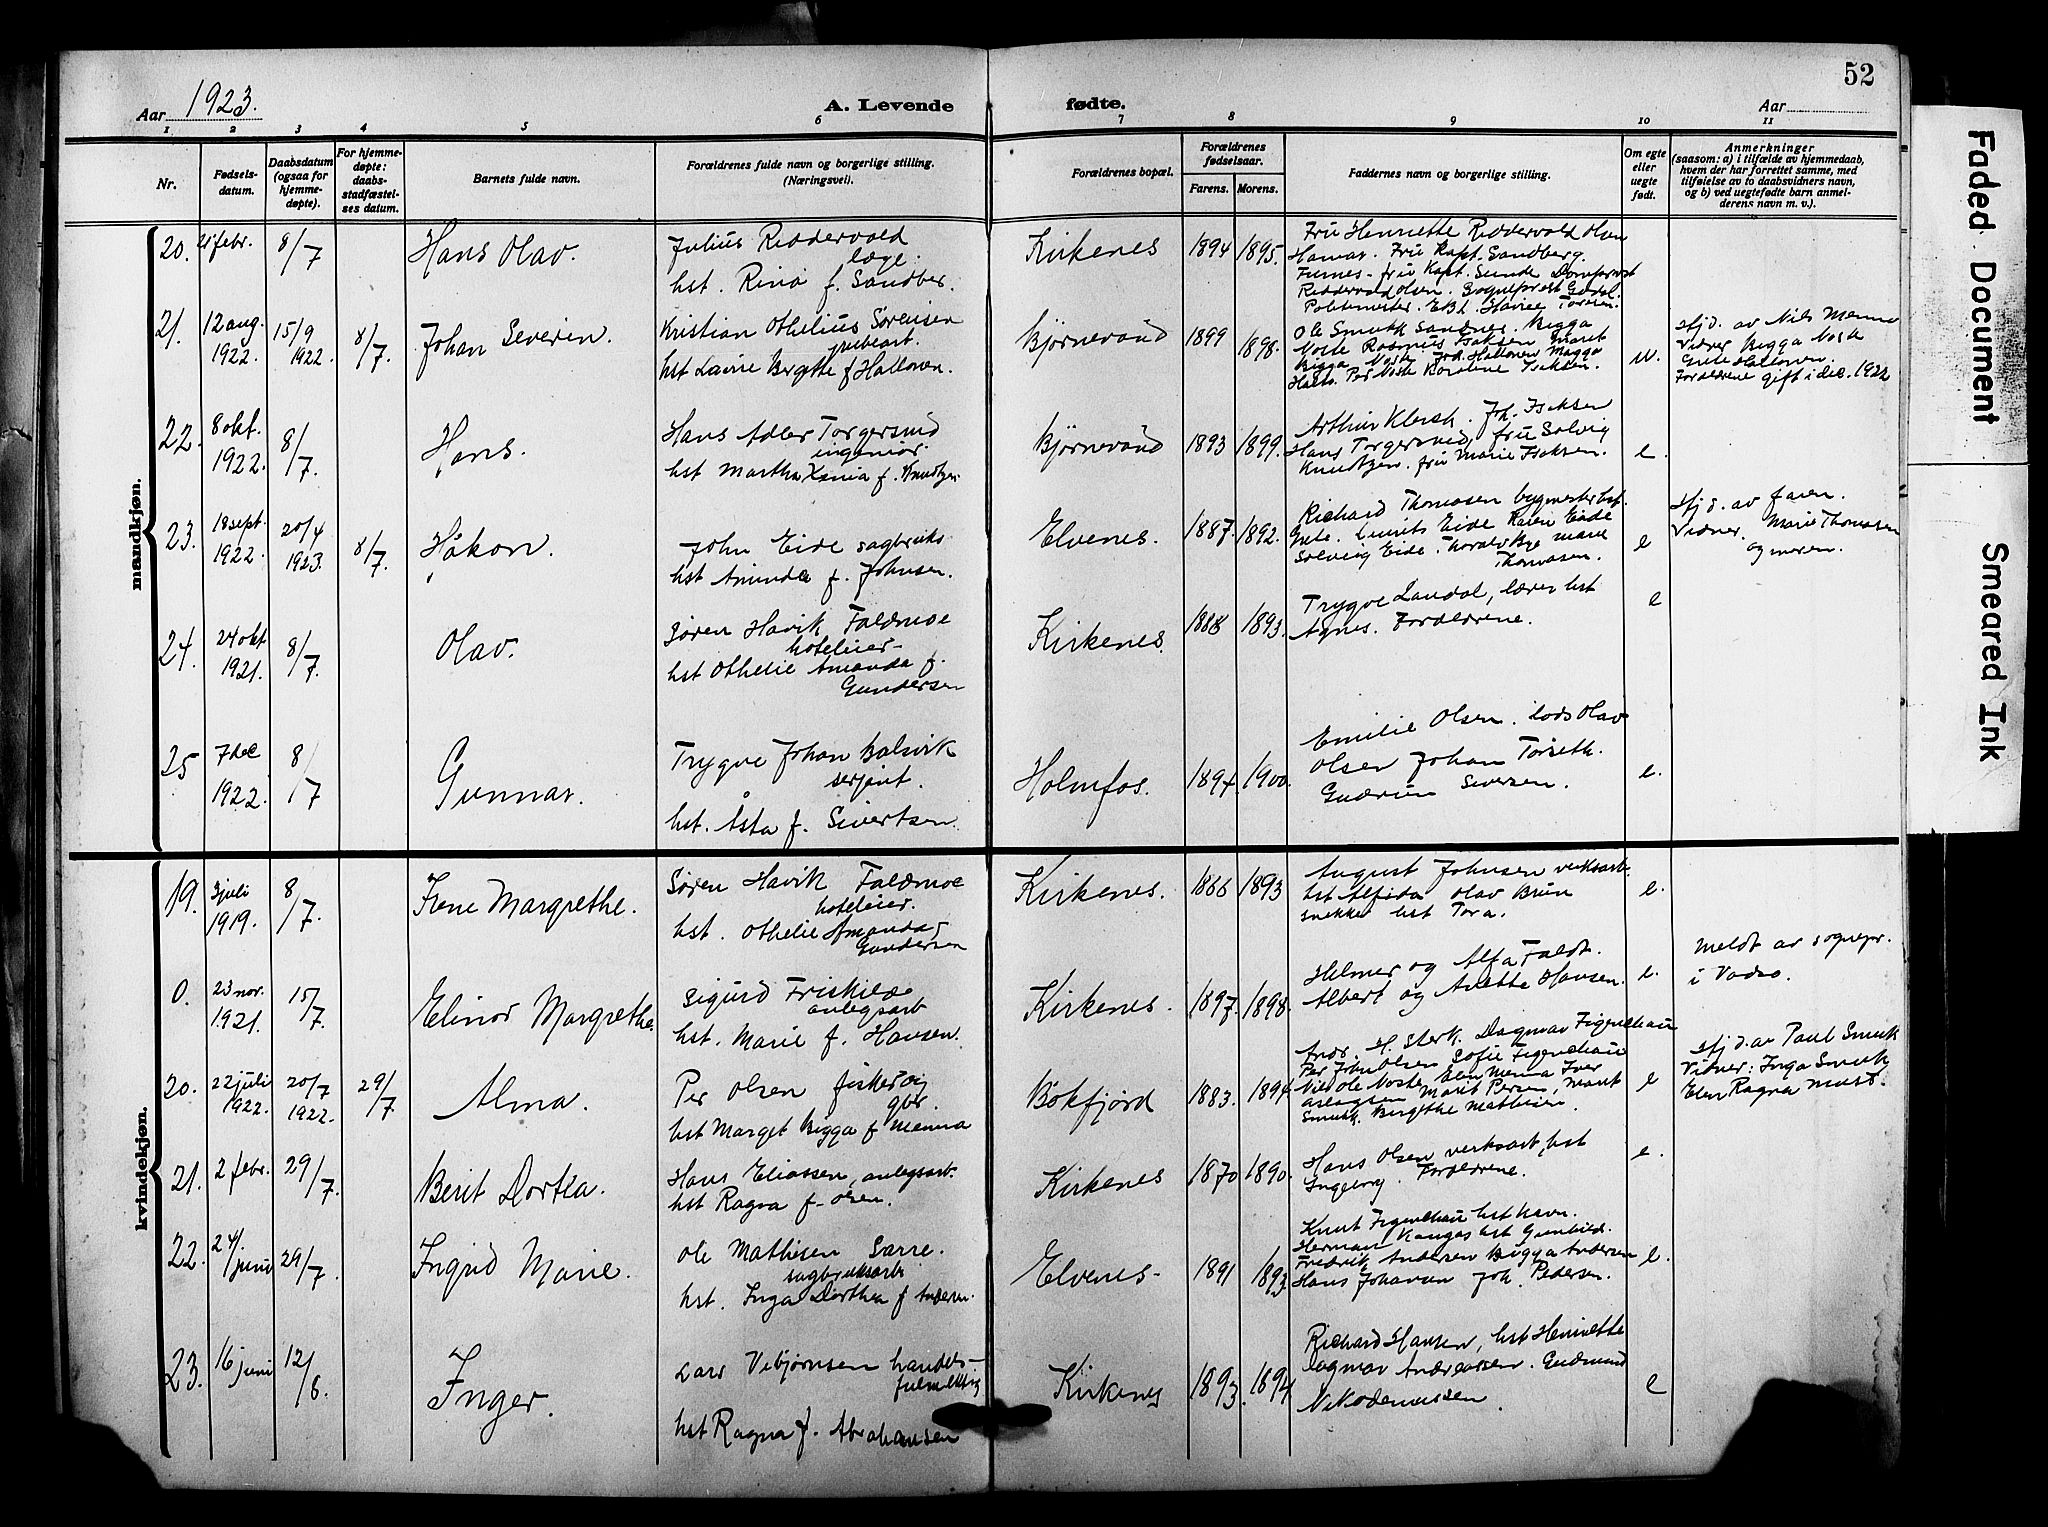 52
Aar 1923.
A. Levende fødte.
Aar
1 2 3 4 5 6 7 8 9 10 11
Nr.
Fødsels-
datum.
Daabsdatum
(ogsaa for
hjemme-
døpte).
For hjemme-
døpte:
daabs-
stadfæstel-
ses datum.
Barnets fulde navn.
Forældrenes fulde navn og borgerlige stilling.
(Næringsvei).
Forældrenes bopæl.
Forældrenes
fødselsaar.
Farens. Morens.
Faddernes navn og borgerlige stilling.
Om egte
eller
uegte
født.
Anmerkninger
(saasom: a) i tilfælde av hjemmedaab,
hvem der har forrettet samme, med
tilføielse av to daabsvidners navn,
og b) ved uegtefødte barn anmel-
derens navn m. v.).
mandkjøn.
20. 21 febr. 8/7 Hans Olav.
Julius Riddervold
læge.
hst. Rina f. Sandber.
Kirkenes 1894 1895.
Fru Henriette Riddervold Olsen
Hamar. Fru Kapt. Sandberg.
Furnes - fru Kapt. Sunde Domprost
Riddervold Olsen. Sogneprest
Politimester.
21. 12 aug. 1922. 15/9 1922. 8/7. Johan Severin.
Kristian Othelius Sørensen
grubearb.
hst Lavine Bergitte f Hallonen.
Bjørnevand 1899 1898.
Ole Smukk Sandnes. Bigga
Noste Rasmus Isaksen Marit
Bigga Noste Joh. Hallonen Magga
Per Noste Karoline Isaksen.
u.
Hjd. av Nils Menna
Vidner Bigga Noste
Grete Hallonen.
Forældrene gift i dec. 1922
22. 8 okt. 1922. 8/7. Hans.
Hans Adler Torgersrud
ingeniør.
hst Martha Xenia f. Knudtzen
Bjørnevand 1893 1899.
Arthur Klerck. Joh. Isaksen
Hans Torgersrud, fru Solvig
Knudtzen. fru Marie Isaksen.
e.
23. 18 sept. 1922. 20/4 1923. 8/7. Håkon.
John Eide sagbruks.
hst Aminda f. Johnsen.
Elvenes. 1887. 1892.
Richard Thomasen bygmester hst.
Grete. Eide Karen Eide
Solveig Eide. Marie
Thomasen.
e
Hjd. av faren.
Vidner. Marie Thomasen
og moren.
24. 24 okt 1921. 8/7. Olav.
Søren Havik Faldmoe
hoteleier -
hst Othelie Amanda f.
Gundersen
Kirkenes. 1888 1893.
Trygve Landal, lærer hst
Agnes. Forældrene.
e
25 7 dec 1922. 8/7 Gunnar.
Trygve Johan Balsvik
serjant.
hst. Åsta f. Sivertsen.
Holmfos. 1894. 1900.
Emilie Olsen. lods Olav
Olsen Johan Torseth.
Gudrun Seversen.
e.
kvindekjøn.
19. 3 juli 1919. 8/7. Irene Margrethe.
Søren Havik Faldmoe
hoteleier.
hst. Othelie Amanda f
Gundersen
Kirkenes. 1866 1893
August Johnsen verksarb.
hst Alfida Olav Brun
snekker hst Tora.
e.
0. 23 nov. 1921. 15/7. Elinor Margrethe.
Sigurd Friskilde
anlegsarb
hst. Marie f. Hansen.
Kirkenes. 1897. 1898.
Helmer og Alfa Faldt.
Albert og Anette Hansen.
e.
Meldt av sognepr.
i Vadsø.
20. 22 juli 1922. 20/7 1922. 29/7 Alma.
Per Olsen fisker og
gbr.
hst Marget Bigga f Menna
Bökfjord 1883. 1894.
Andr. H. Sterk. Dagmar Figenschau
Per John Olsen Sofie Figenschau
Nils Ole Noste, Elen Menna Iver
Aslaksen Marit Persen, Marit
Smukk. Bergithe Mathisen.
e
Hjd. av Paul Smuk
Vidner: Inga Smuk
Elen Ragna Must.
21. 2 febr. 29/7. Berit Dortea.
Hans Eliassen, anlegsarb.
hst Ragna f. Olsen.
Kirkenes 1870 1890.
Hans Olsen verksarb, hst
Ingeborg. Forældrene.
e.
22. 24/juni 29/7. Ingrid Marie.
Ole Mathisen Sarre.
sagbruksarb
hst. Inga Dorthea f Andersen.
Elvenes - 1891 1893.
Knut Figenschau hst navn.
Herman Kangas hst Gunhild.
Fredrik Andersen Bigga Andersen
Hans Johansen Joh. Pedersen.
e.
23. 16 juni 12/8. Inger.
Lars Vebjørnsen handels-
fulmektig
hst Ragna f. Abrahamsen
Kirkenes 1893. 1894
Richard Hansen, hst Henriette
Dagmar Andreassen. Gudmund
Nikodemussen.
e
Faded Document
Smeared Ink